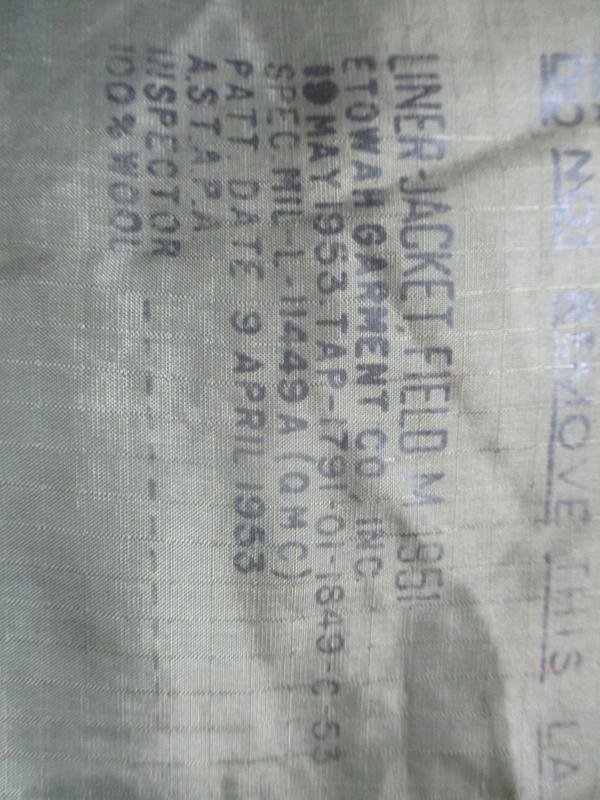 DO NOT REMOVE THIS LA
LINER-JACKET FIELD M 1951
ETOWAH GARMENT CO. INC.
19 MAY 1953. TAP-1791-01-1849-C-53
SPEC. MIL-L-11449A (QMC)
PATT. DATE 9 APRIL 1953
A.S.T.A.P.A.
INSPECTOR
100% WOOL